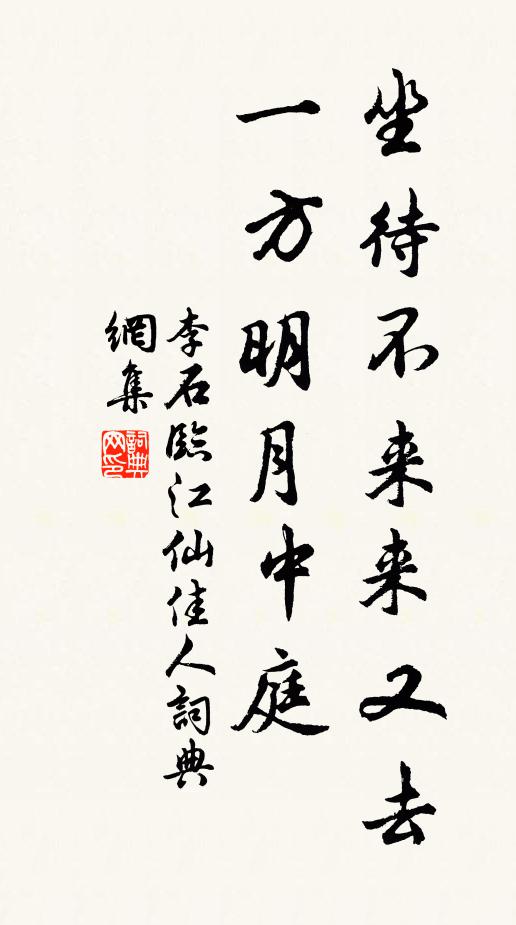 坐待不来来又去
一方明月中庭
李石臨江仙佳人詞典
網集
詞典
网印